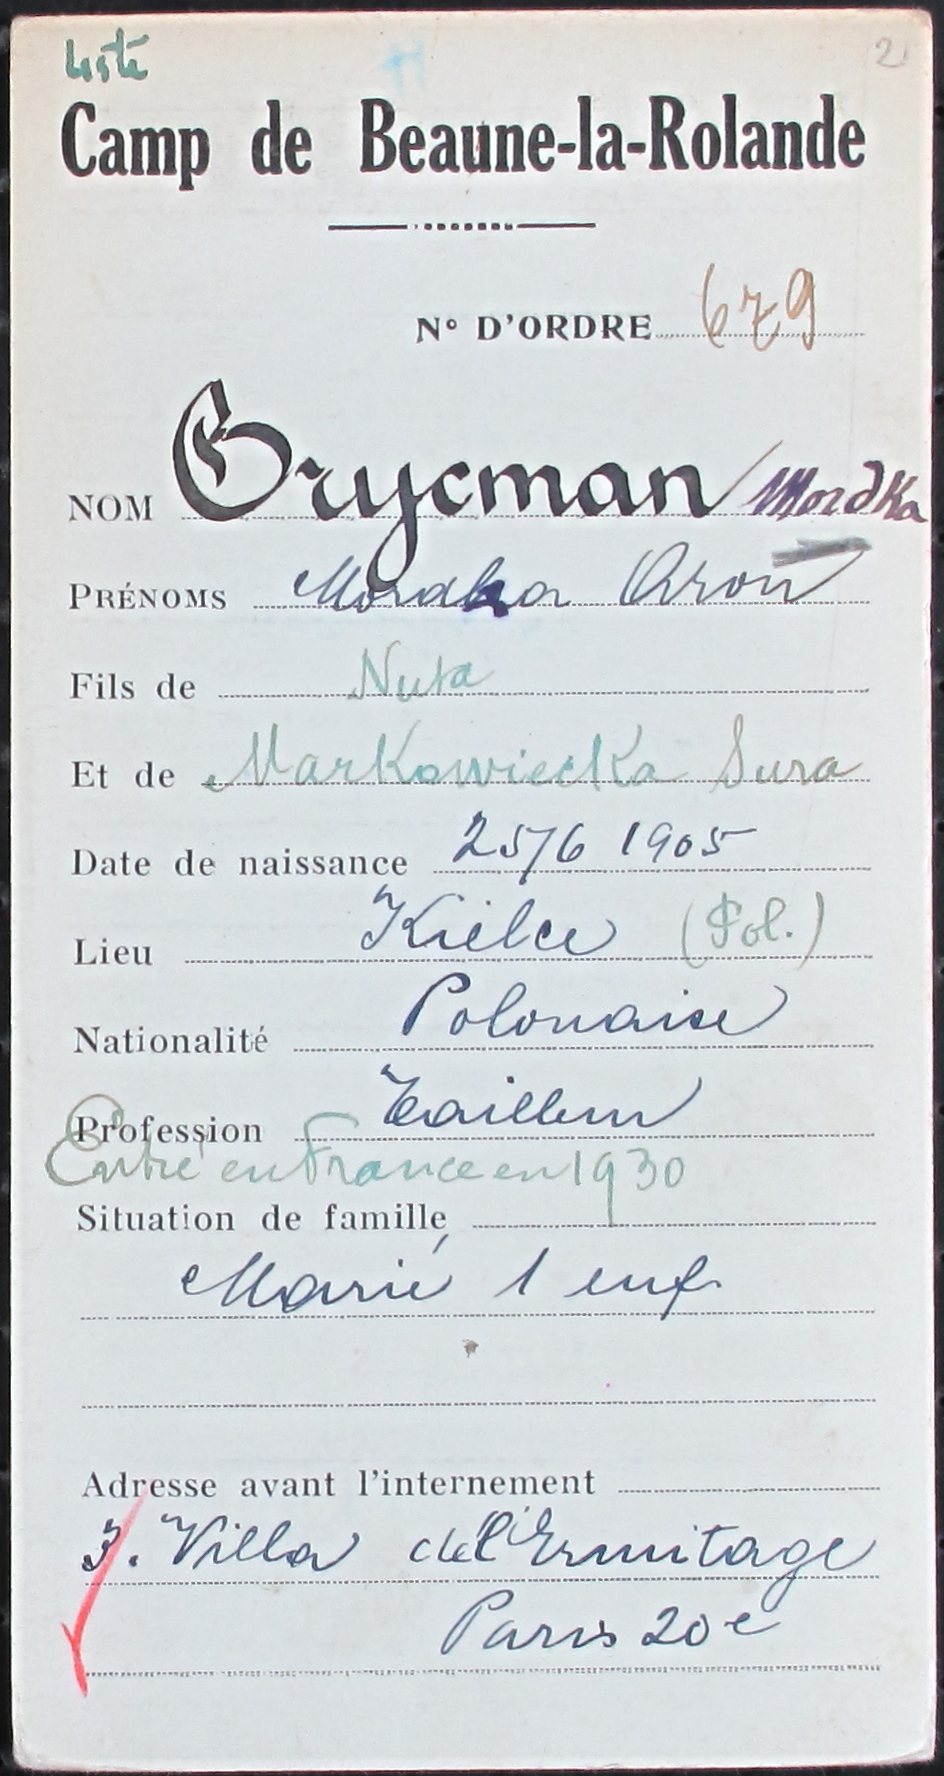 listé 2
Camp de Beaune-la-Rolande
N° D'ORDRE 679
NOM Grycman / Mordka
PRÉNOMS Mordka Aron
Fils de Nuta
Et de Markowiecka Sura
Date de naissance 25/6 1905
Lieu Kielce (Pol.)
Nationalité Polonaise
Profession Tailleur
Entré en France en 1930
Situation de famille
Marié 1 enf
Adresse avant l'internement
3. Villa de l'Ermitage
Paris 20e